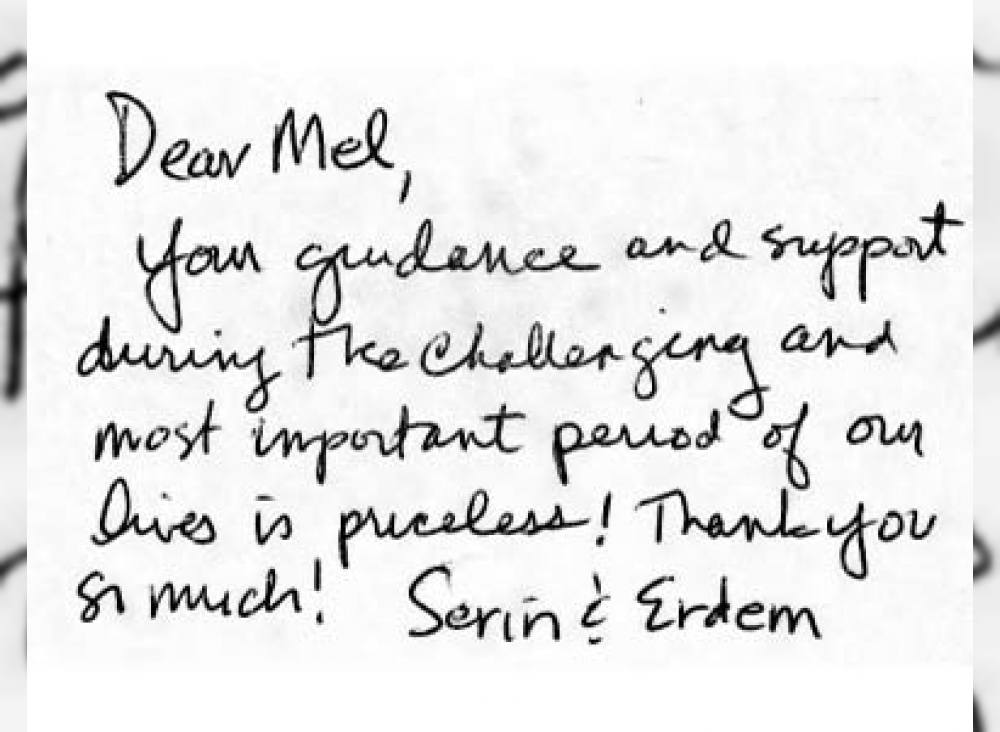 Dear Mel,
Your guidance and support
during the challenging and
most important period of our
lives is priceless! Thank you
so much! Serin & Erdem